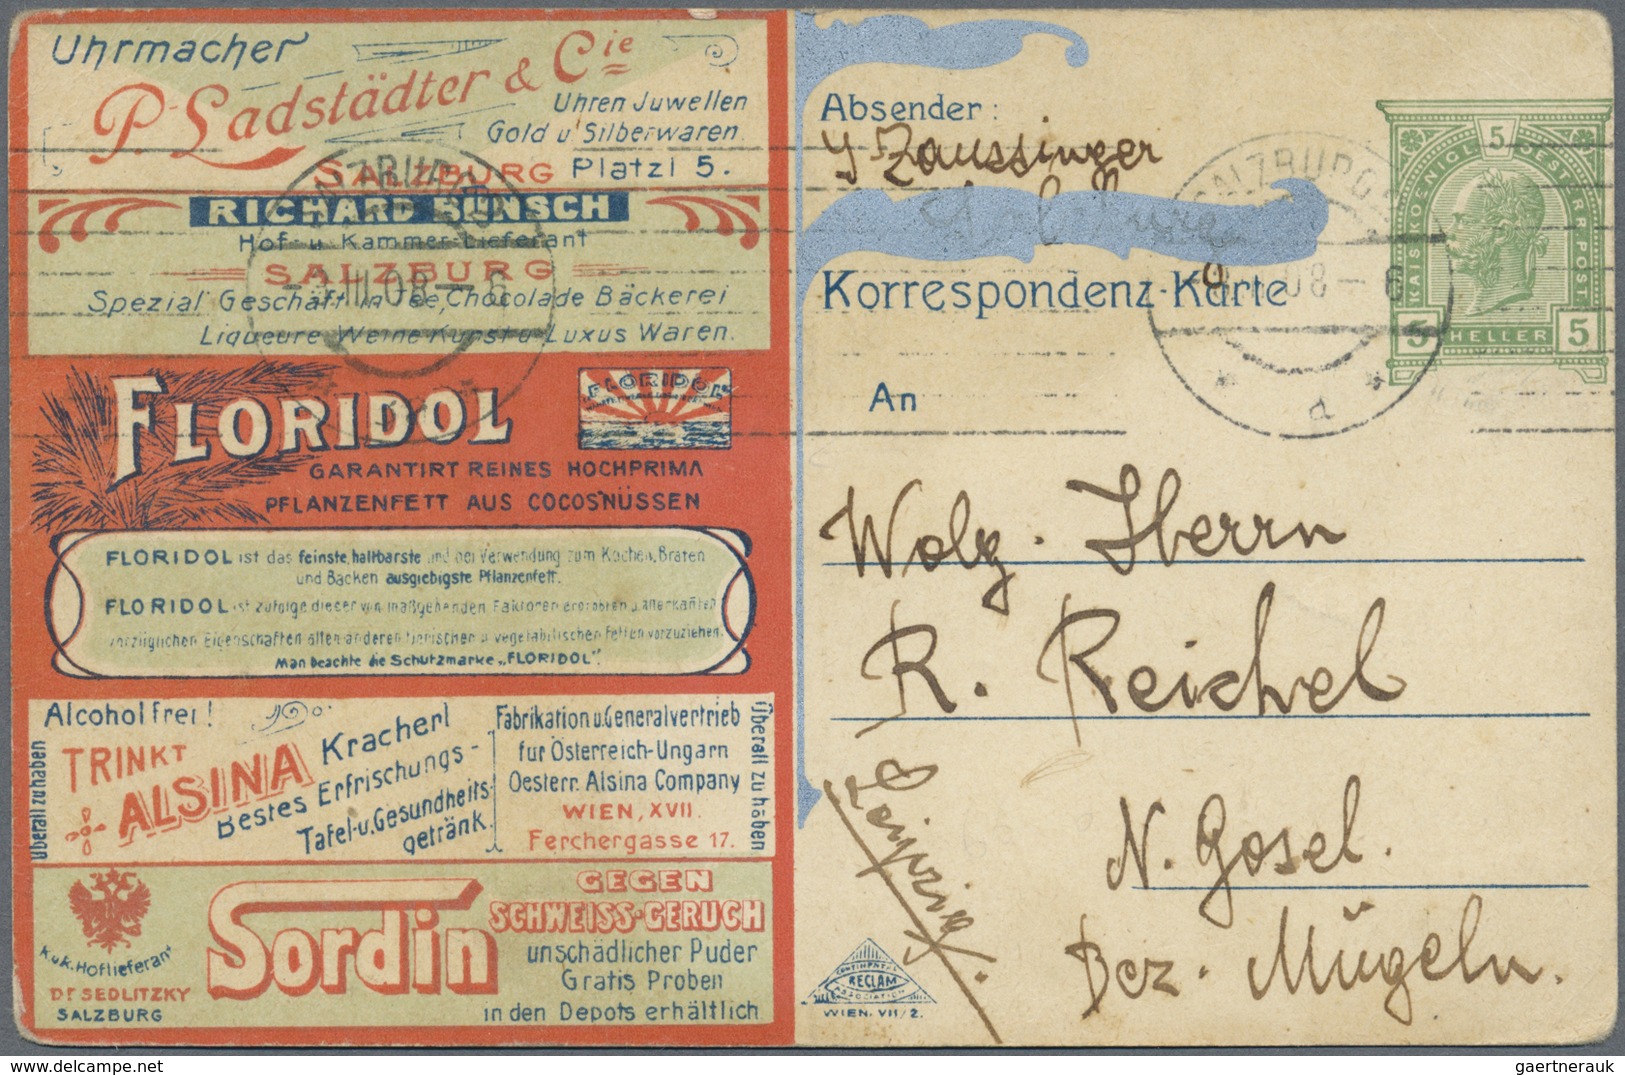 Uhrmacher
P. Ladstädter & Cie
Uhren Juwellen
Gold u. Silberwaren.
SALZBURG Platzl 5.
RICHARD BUNSCH
Hof- u. Kammer-Lieferant
SALZBURG
Spezial Geschäft in Tee, Chocolade Bäckerei
Liqueure Weine Kunst u Luxus Waren.
FLORIDOL
FLORIDOL
GARANTIRT REINES HOCHPRIMA
PFLANZENFETT AUS COCOSNÜSSEN
FLORIDOL ist das feinste, haltbarste und bei Verwendung zum Kochen, Braten
und Backen ausgiebigste Pflanzenfett.
FLORIDOL ist zufolge dieser von maßgebenden Faktoren erprobten u. anerkañten
vorzüglichen Eigenschaften allen anderen tierischen u vegetabilischen Fetten vorzuziehen.
Man beachte die Schutzmarke „FLORIDOL“.
Überall zu haben
Alcohol frei!
TRINKT
ALSINA
Kracherl
Bestes Erfrischungs-
Tafel-u.Gesundheits-
getränk.
Fabrikation u.Generalvertrieb
fur Österreich-Ungarn
Oesterr. Alsina Company
WIEN, XVII.
Ferchergasse 17.
Überall zu haben
K.u.K. Hoflieferant
DR SEDLITZKY
SALZBURG
Sordin
GEGEN
SCHWEISS-GERUCH
unschädlicher Puder
Gratis Proben
in den Depots erhältlich
Absender:
Zaussinger
Korrespondenz-Karte
An
KAIS. KOENIGL. 5 OESTERR. POST.
5 HELLER 5
SALZBURG
08-6
d
SALZBURG
III.08-6
Wolg. Herrn
R. Reichel
Leipzig.
N. Gosel.
Bez. Mügeln.
CONTINENTAL
RECLAM
ASSOCIATION
WIEN. VII/2.
https://www.delcampe.net
gaertnerauk